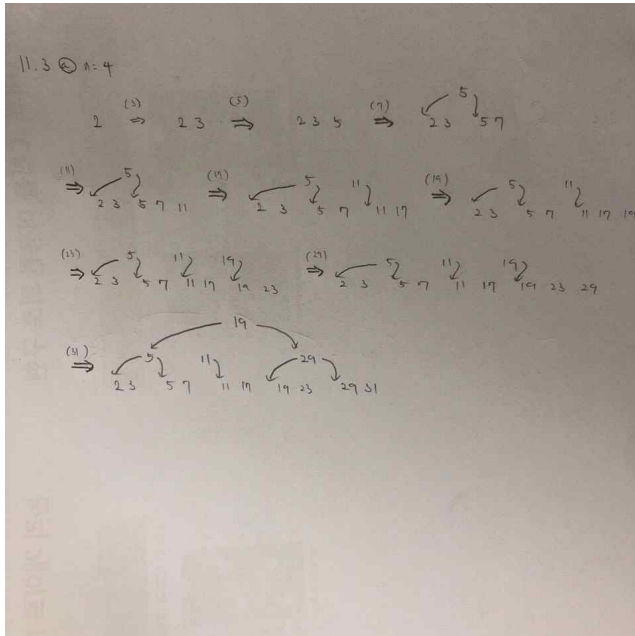 11.3 ⓐ n=4
5
2 (3) ⇒ 2 3 (5) ⇒ 2 3 5 (7) ⇒ 2 3 5 7
(11) 5 (17) 5 11 (19) 5 11
⇒ 2 3 5 7 11 ⇒ 2 3 5 7 11 17 ⇒ 2 3 5 7 11 17 19
(23) 5 11 19 (29) 5 11 19
⇒ 2 3 5 7 11 17 19 23 ⇒ 2 3 5 7 11 17 19 23 29
19
(31) 5 11 29
⇒ 2 3 5 7 11 17 19 23 29 31